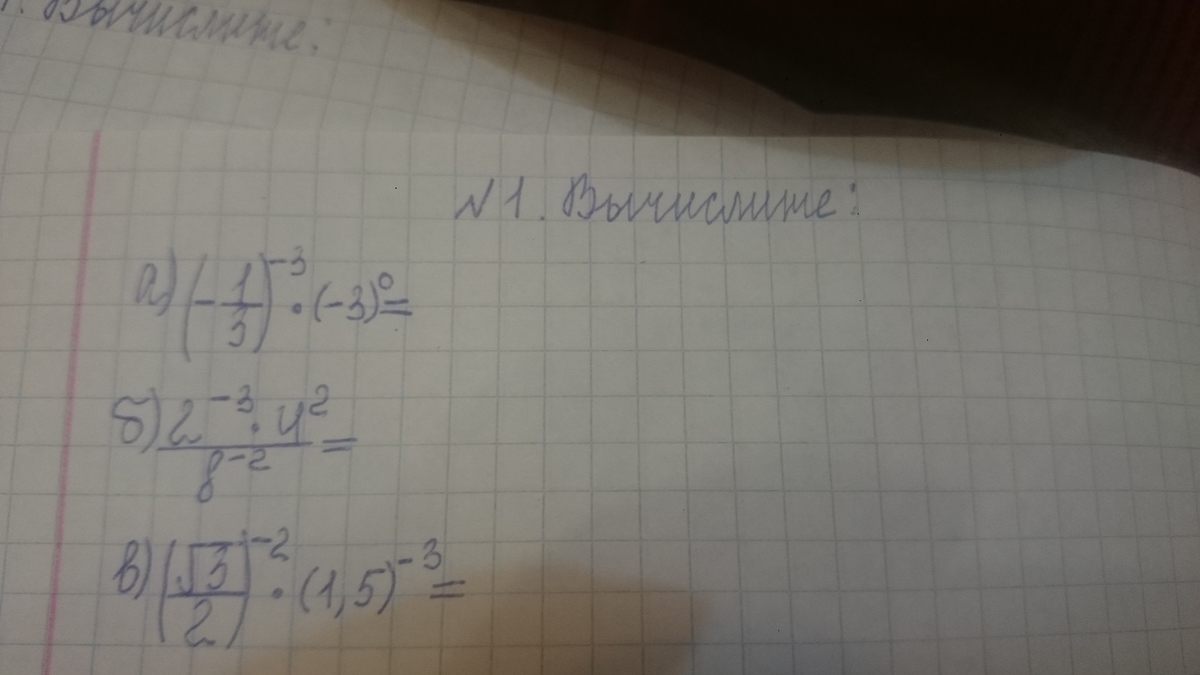 1. Вычислите:
№1. Вычислите:
а) (-1/3)^-3 · (-3)^0 =
б) 2^-3 · 4^2 / 8^-2 =
в) (√3/2)^-2 · (1,5)^-3 =